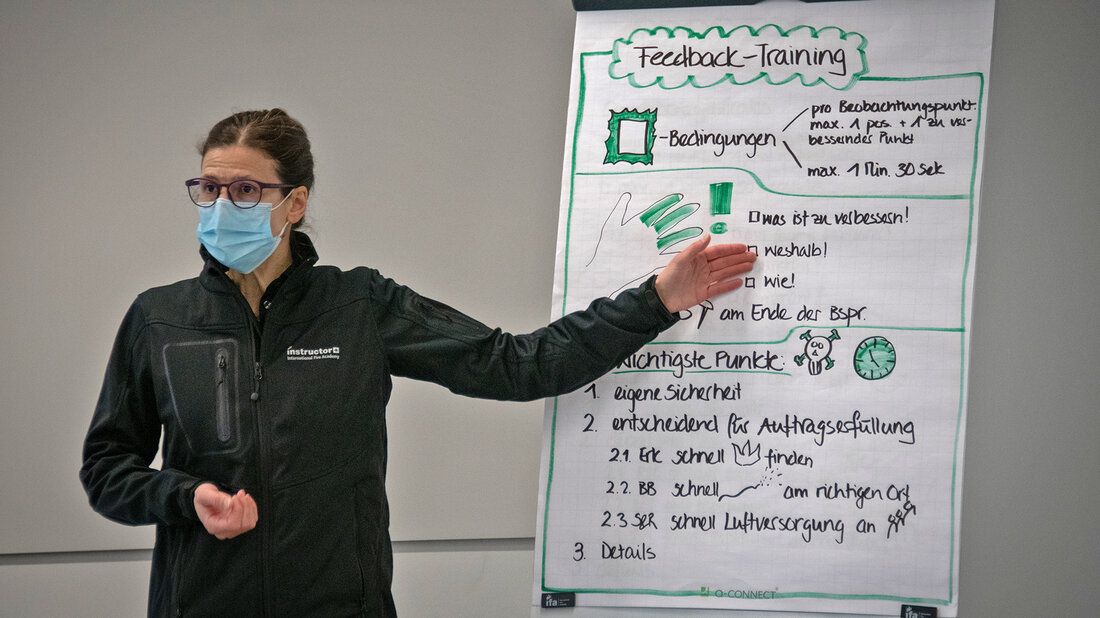 Feedback-Training
-Bedingungen
pro Beobachtungspunkt
max. 1 pos. + 1 zu ver-
besserndes Punkt
max. 1 Min. 30 Sek
was ist zu verbessern!
weshalb!
wie!
am Ende der Bspr.
Wichtigste Punkte:
1. eigene Sicherheit
2. entscheidend für Auftragserfüllung
2.1. Erk schnell finden
2.2. BB schnell am richtigen Ort
2.3 SER schnell Luftversorgung an
3. Details
Q-CONNECT
ifa
ifa
instructor
International Fire Academy